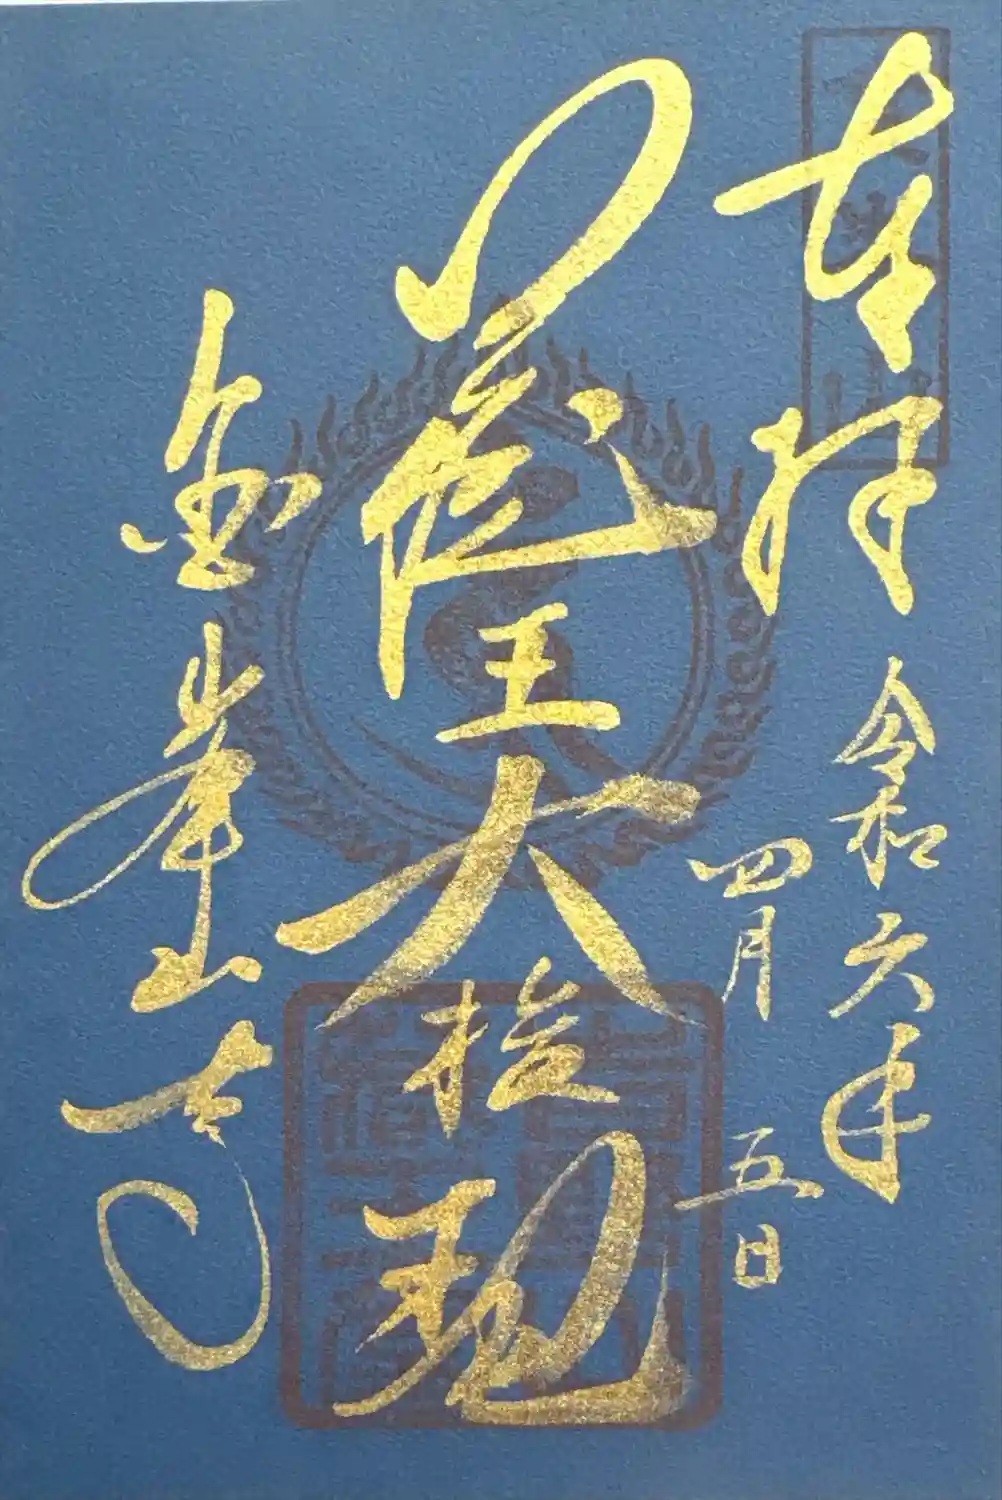 奉拝
令和六年
四月
五日
蔵王大権現
金峯山寺